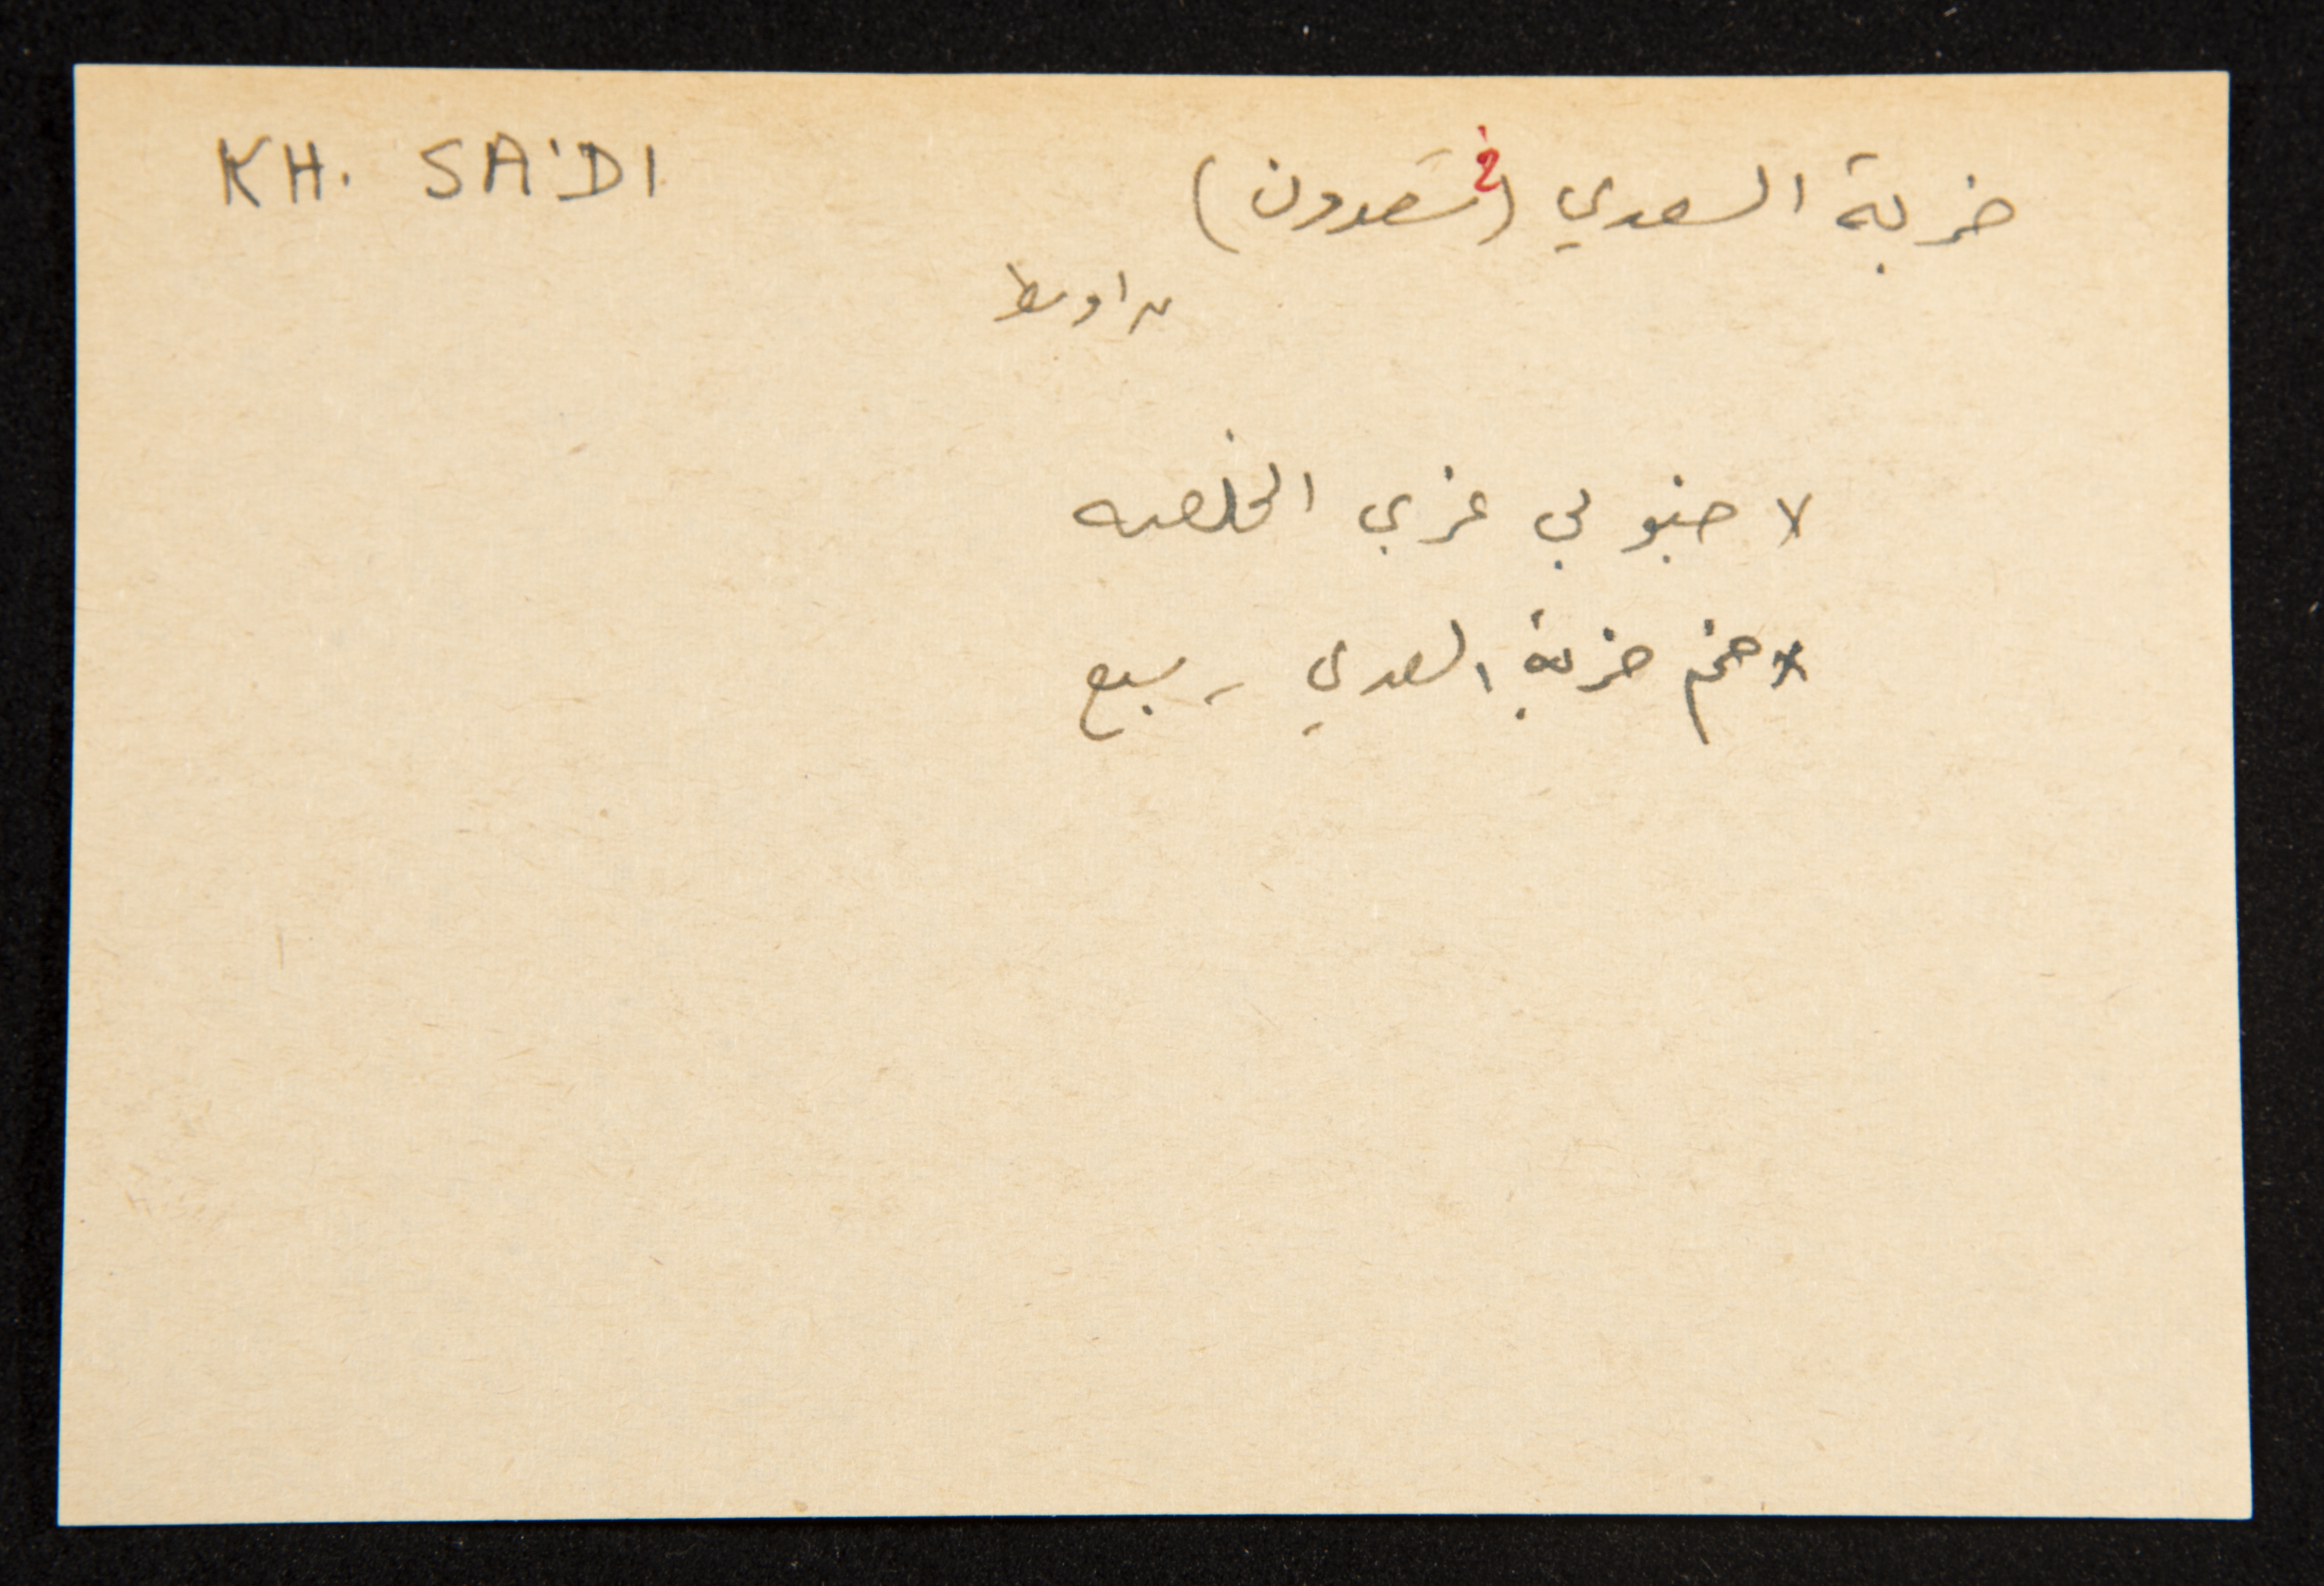 KH. SA'DI
خربة السعدي (خ سَعدون)
اوسط
جنوبي غربي الخلصه
خربة السعدي - سبع